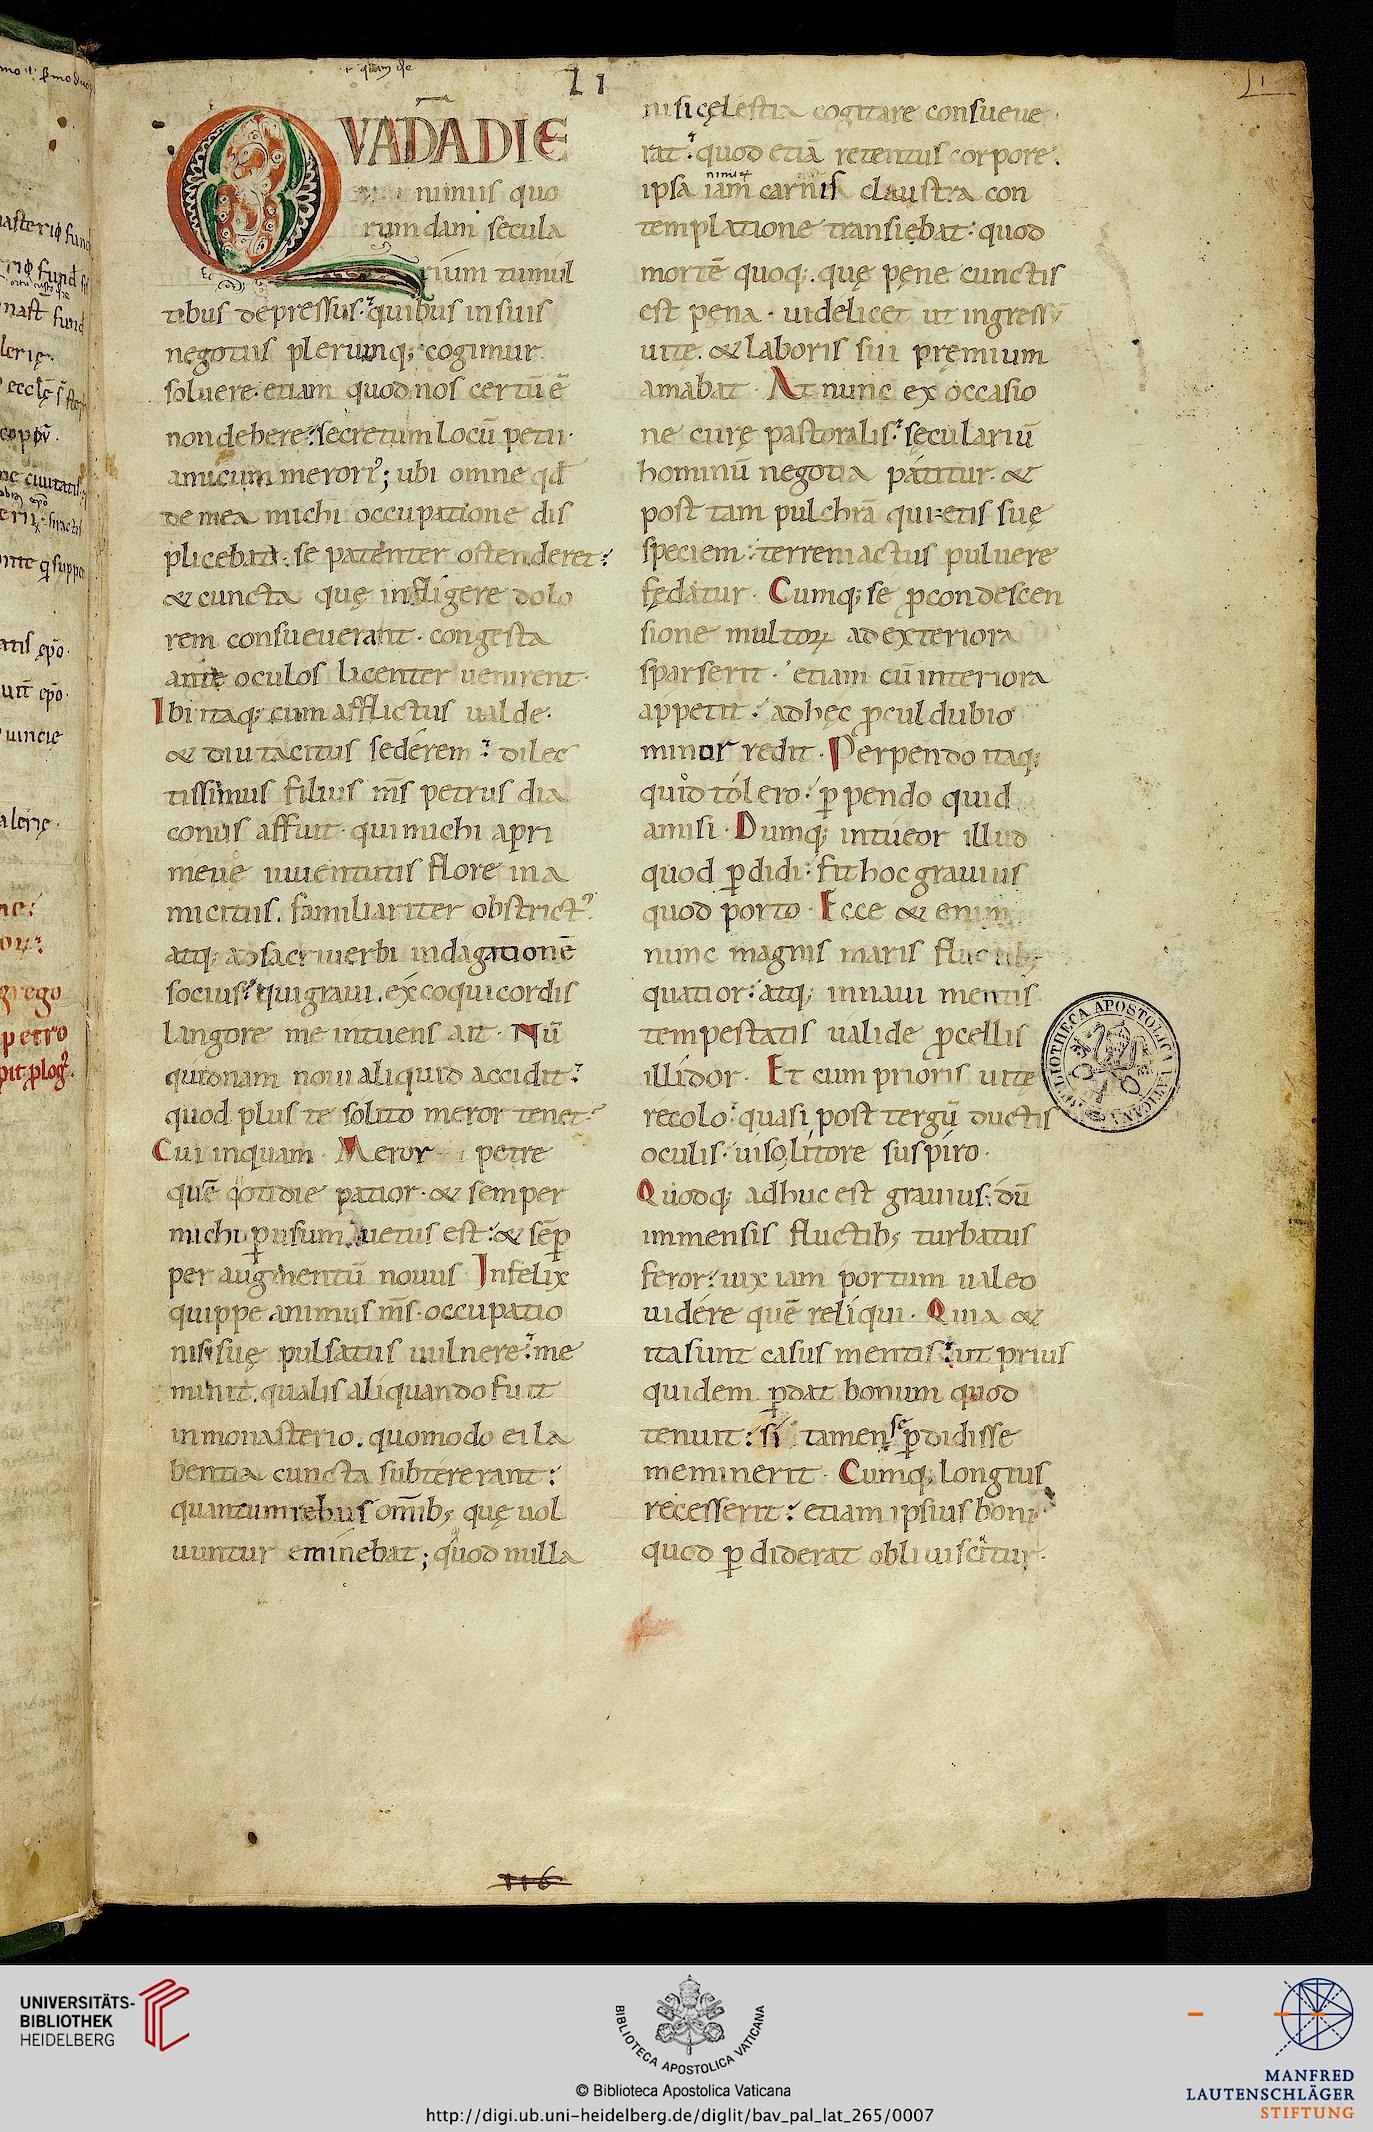 QVADĀ DIE
nimiis quo
rumdam secula
rium tumul
tibus depressus. quibus in suis
negotiis plerumq; cogimur
soluere. etiam quod nos certū ē
non debere. secretum locū petii.
amicum meroriˀ; ubi omne qđ
de mea michi occupatione dis
plicebat. se patenter ostenderet:
& cuncta quę infligere dolo
rem consueuerant. congesta
ante oculos licenter uenirent.
Ibi itaq; cum afflictus ualde.
& diu tacitus sederem. dilec
tissimus filius m̄s petrus dia
conus affuit. qui michi a pri
meue iuuentutis flore in a
micitiis. familiariter obstrictˀ.
atq; ad sacri uerbi indagationē
socius. qui graui. excoqui cordis
langore me intuens ait. Nū
quidnam noui aliquid accidit?
quod plus te solito meror tenet.
Cui inquam. Meror petre
quē cotidie patior. & semper
michi ꝑ usum uetus est: & sēꝑ
per augmentū nouus. Infelix
quippe animus m̄s. occupatio
nis suę pulsatus uulnere. me
minit. qualis aliquando fuit
in monasterio. quomodo ei la
bentia cuncta subter erant:
quantum rebus omīb; quę uol
uuntur eminebat; quod nulla
nisi cęlestia cogitare consueue
rat. quod etiā retentus corpore.
ipsa iam carnis claustra con
templatione transiebat. quod
mortē quoq;. quę pęne cunctis
est pena. uidelicet ut ingressū
uitę. & laboris sui pręmium
amabat. At nunc ex occasio
ne curę pastoralis. seculariū
hominū negotia patitur. &
post tam pulchrā quietis suę
speciem: terreni actus puluere
fędatur. Cumq; se ꝓ condescen
sione multoꝝ ad exteriora
sparserit. etiam cū interiora
appetit: ad hęc ꝓculdubio
minor redit. Perpendo itaq;
quid tolero: ꝑpendo quid
amisi. Dumq; intueor illud
quod ꝑdidi: fit hoc grauius
quod porto. Ecce & enim
nunc magnis maris fluctib;
quatior: atq; in naui mentis
tempestatis ualide ꝓcellis
illidor. Et cum prioris uitę
recolo. quasi post tergū ductis
oculis. uiso litore suspiro.
Quodq; adhuc est grauius. dū
immensis fluctib; turbatus
feror. uix iam portum ualeo
uidere quē reliqui. Quia &
ita sunt casus mentis. ut prius
quidem ꝑdat bonum quod
tenuit: si tamen se ꝑdidisse
meminerit. Cumq; longius
recesserit: etiam ipsius boni
quod ꝑdiderat obliuiscitur.
116
BIBLIOTHECA APOSTOLICA VATICANA
UNIVERSITÄTS-
BIBLIOTHEK
HEIDELBERG
BIBLIOTECA APOSTOLICA VATICANA
© Biblioteca Apostolica Vaticana
http://digi.ub.uni-heidelberg.de/diglit/bav_pal_lat_265/0007
MANFRED
LAUTENSCHLÄGER
STIFTUNG